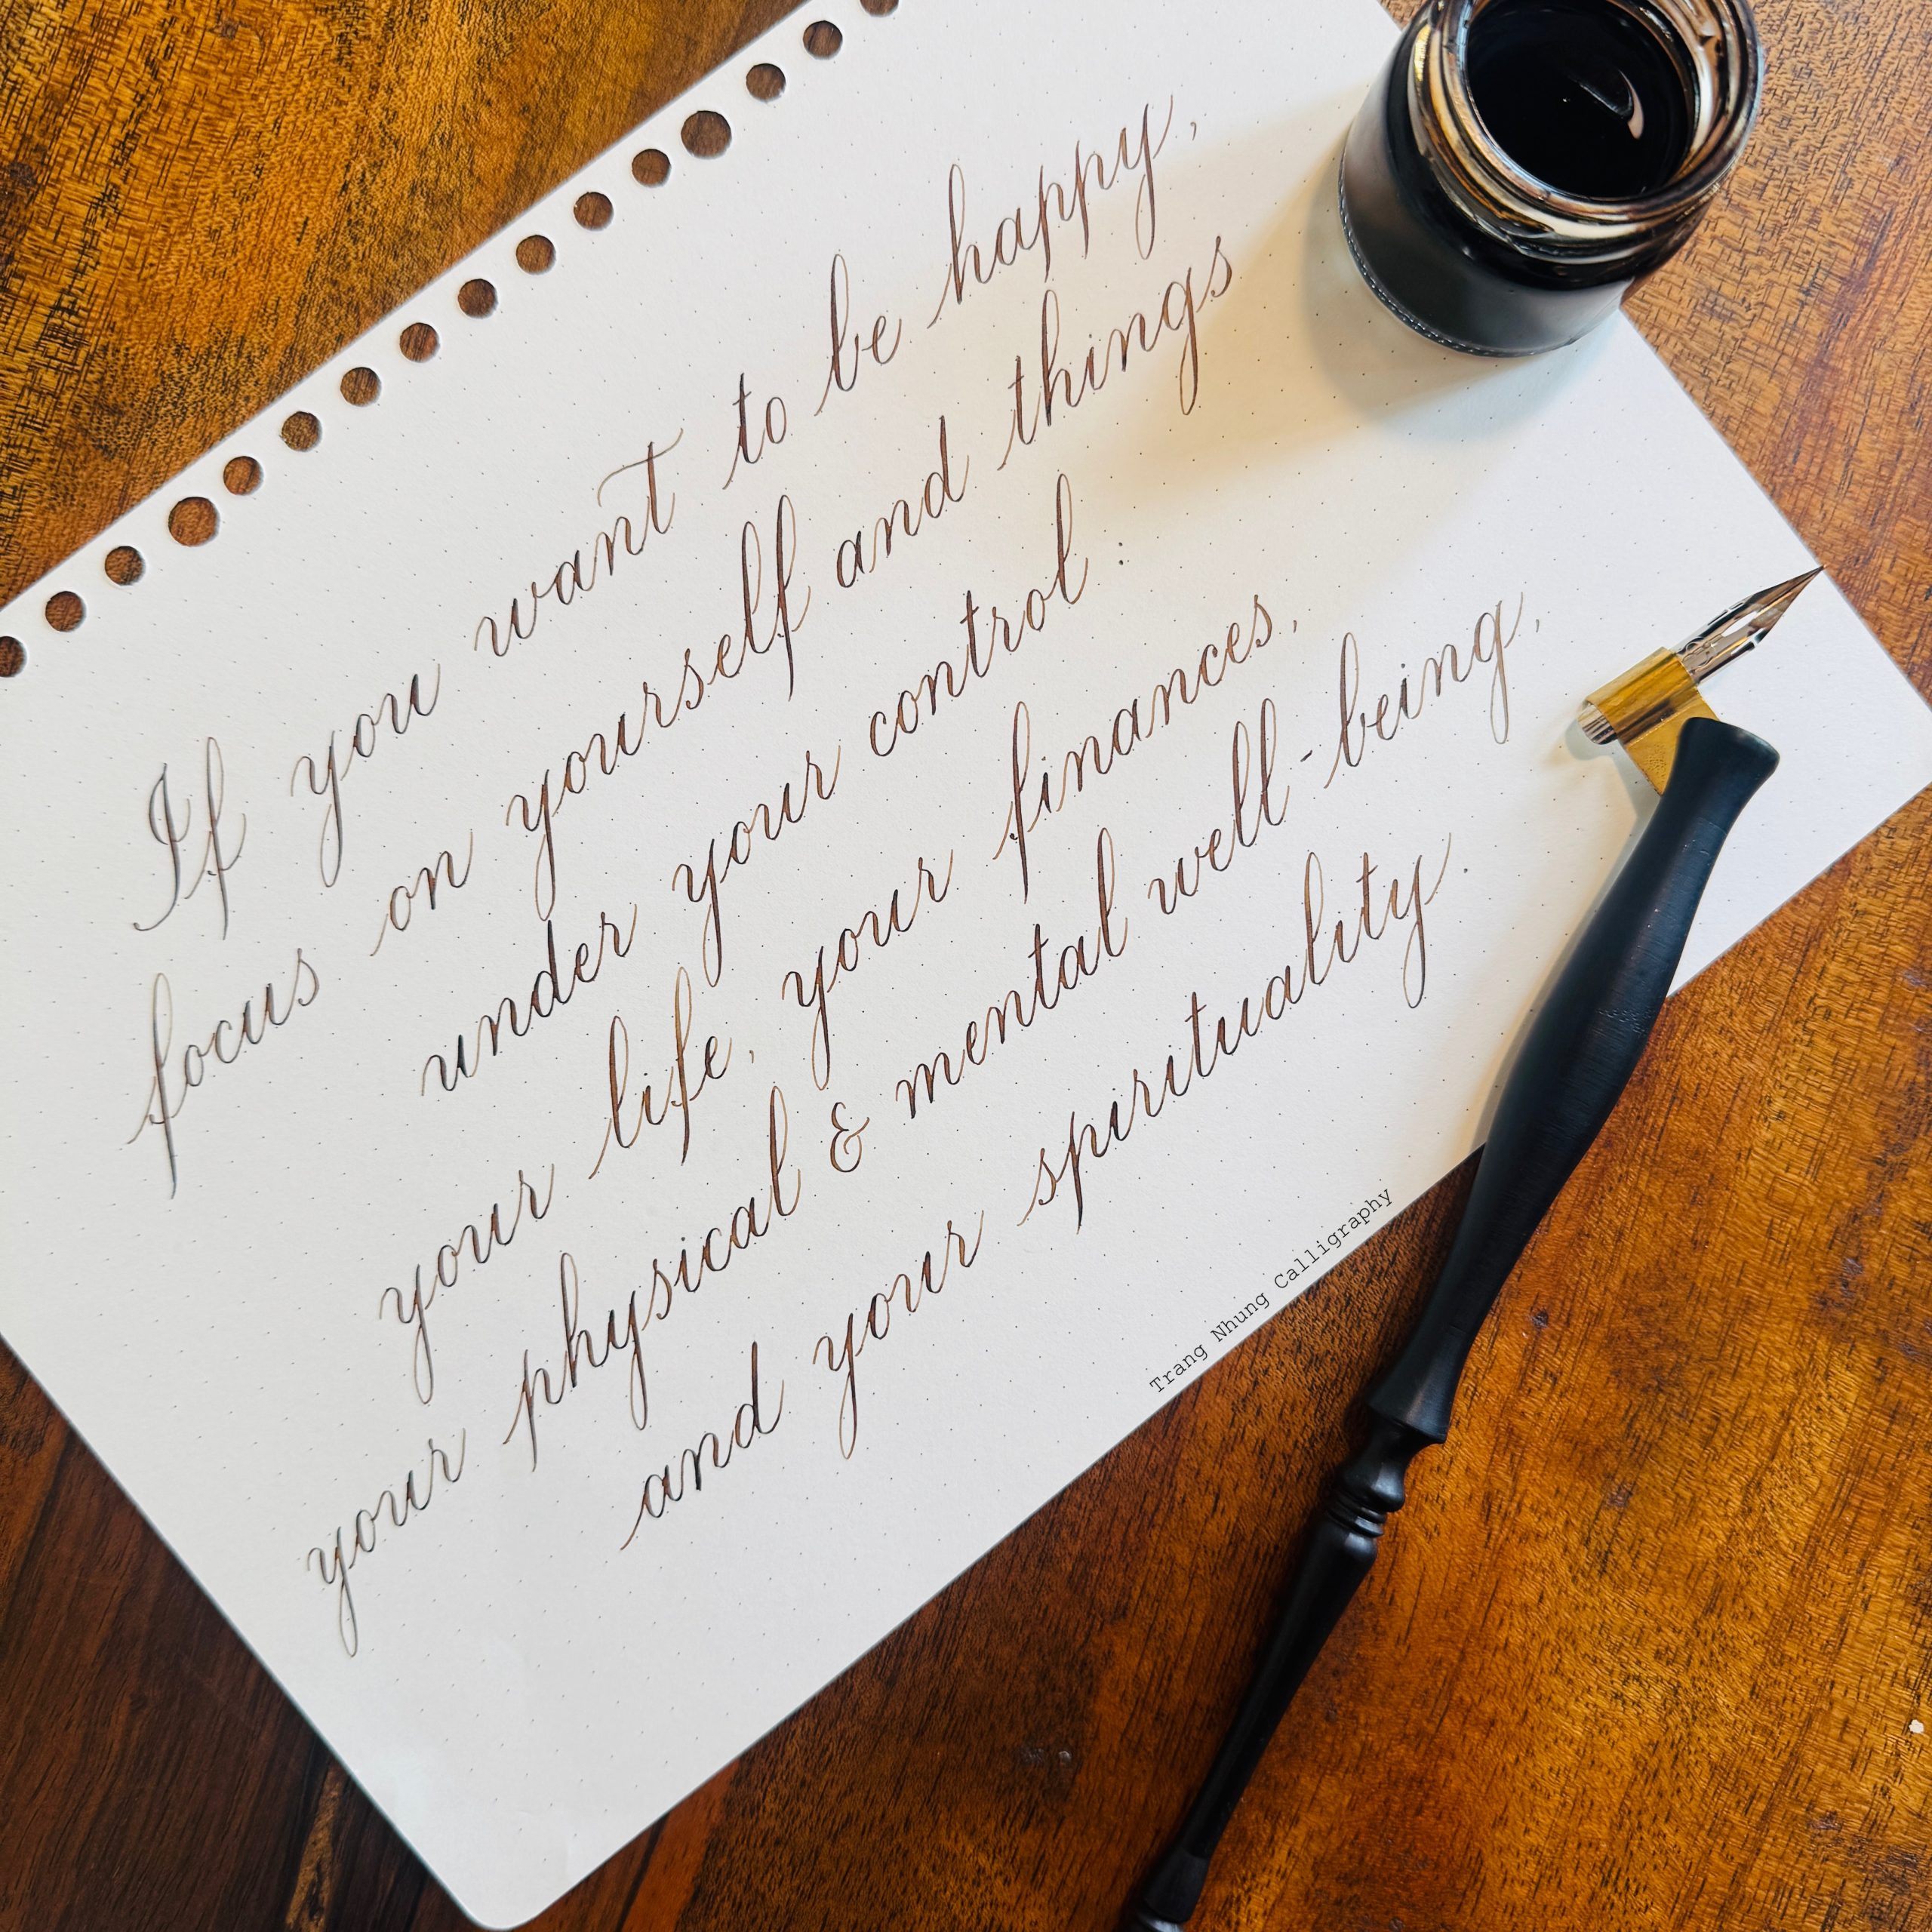 If you want to be happy,
focus on yourself and things
under your control:
your life, your finances,
your physical & mental well-being,
and your spirituality.
Trang Nhung Calligraphy